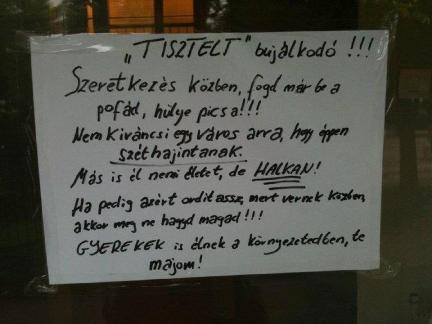 „TISZTELT" bujálkodó !!!
Szeretkezés közben, fogd már be a
pofád, hülye picsa!!!
Nem kiváncsi egy város arra, hogy éppen
széthajintanak.
Más is él nemi életet, de HALKAN!
Ha pedig azért orditassz, mert vernek közben,
akkor meg ne haggd magad!!!
GYEREKEK is élnek a környezetedben, te
majom!